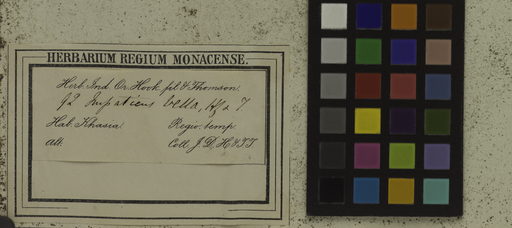 HERBARIUM REGIUM MONACENSE.
Herb. Ind. Or. Hook. fil. & Thomson.
92 Impatiens bella, H.f. & T.
Hab. Khasia. Regio temp.
alt. Coll. J. D. H. & T. T.